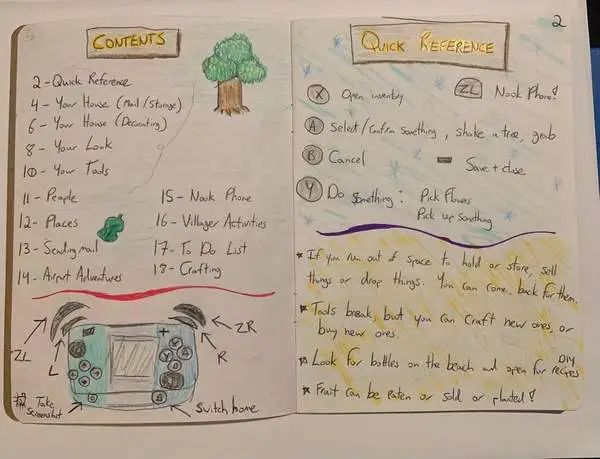 CONTENTS
2 - Quick Reference
4 - Your House (Mail/Storage)
6 - Your House (Decorating)
8 - Your Look
10 - Your Tools
11 - People
12 - Places
13 - Sending mail
14 - Airport Adventures
15 - Nook Phone
16 - Villager Activities
17 - To Do List
18 - Crafting
ZL
L
ZR
R
X
Y A
B
Take
Screenshot
Switch home
2
QUICK REFERENCE
X Open inventory
ZL Nook Phone!
A Select/Confirm something, shake a tree, grab
B Cancel
- Save + close
Y Do something: Pick Flowers
Pick up something
* If you run out of space to hold or store, sell
things or drop things. You can come back for them.
* Tools break, but you can craft new ones, or
buy new ones.
* Look for bottles on the beach and open for DIY
recipes
* Fruit can be eaten or sold or planted!